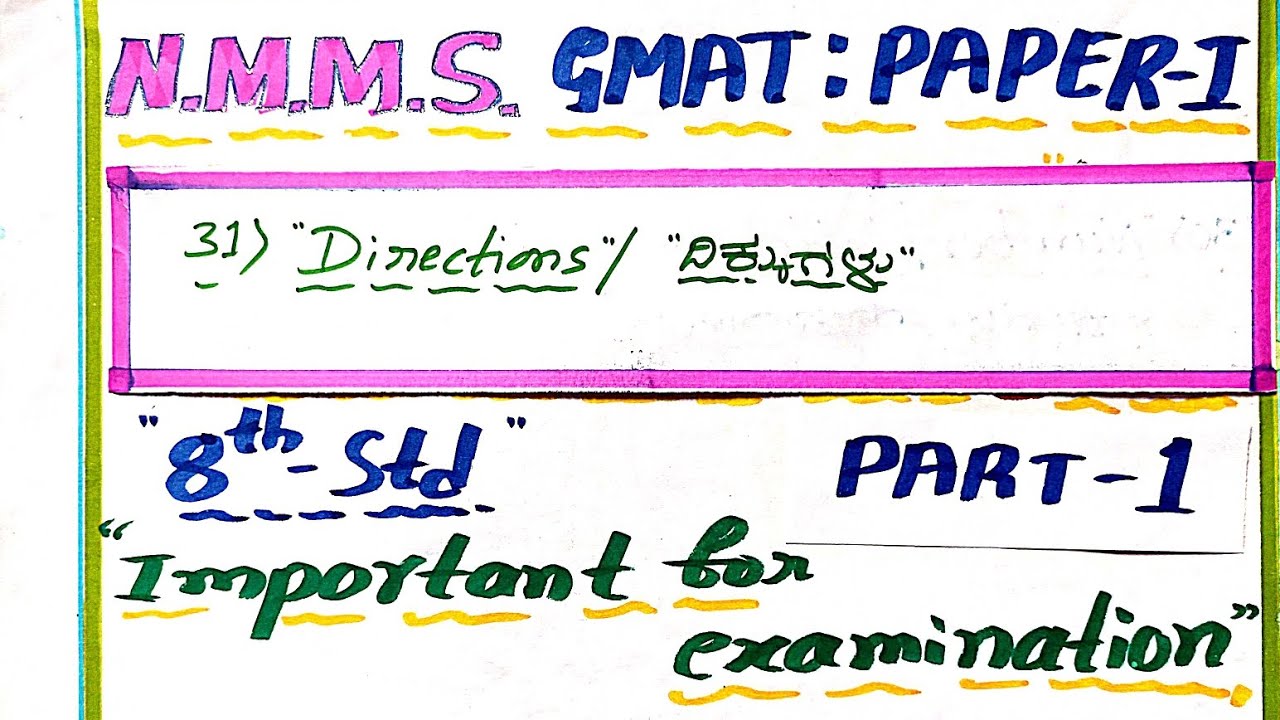 N.M.M.S. GMAT : PAPER-I
31) "Directions"/ "ದಿಕ್ಕುಗಳು"
"8th-Std" PART-1
"Important for
examination"